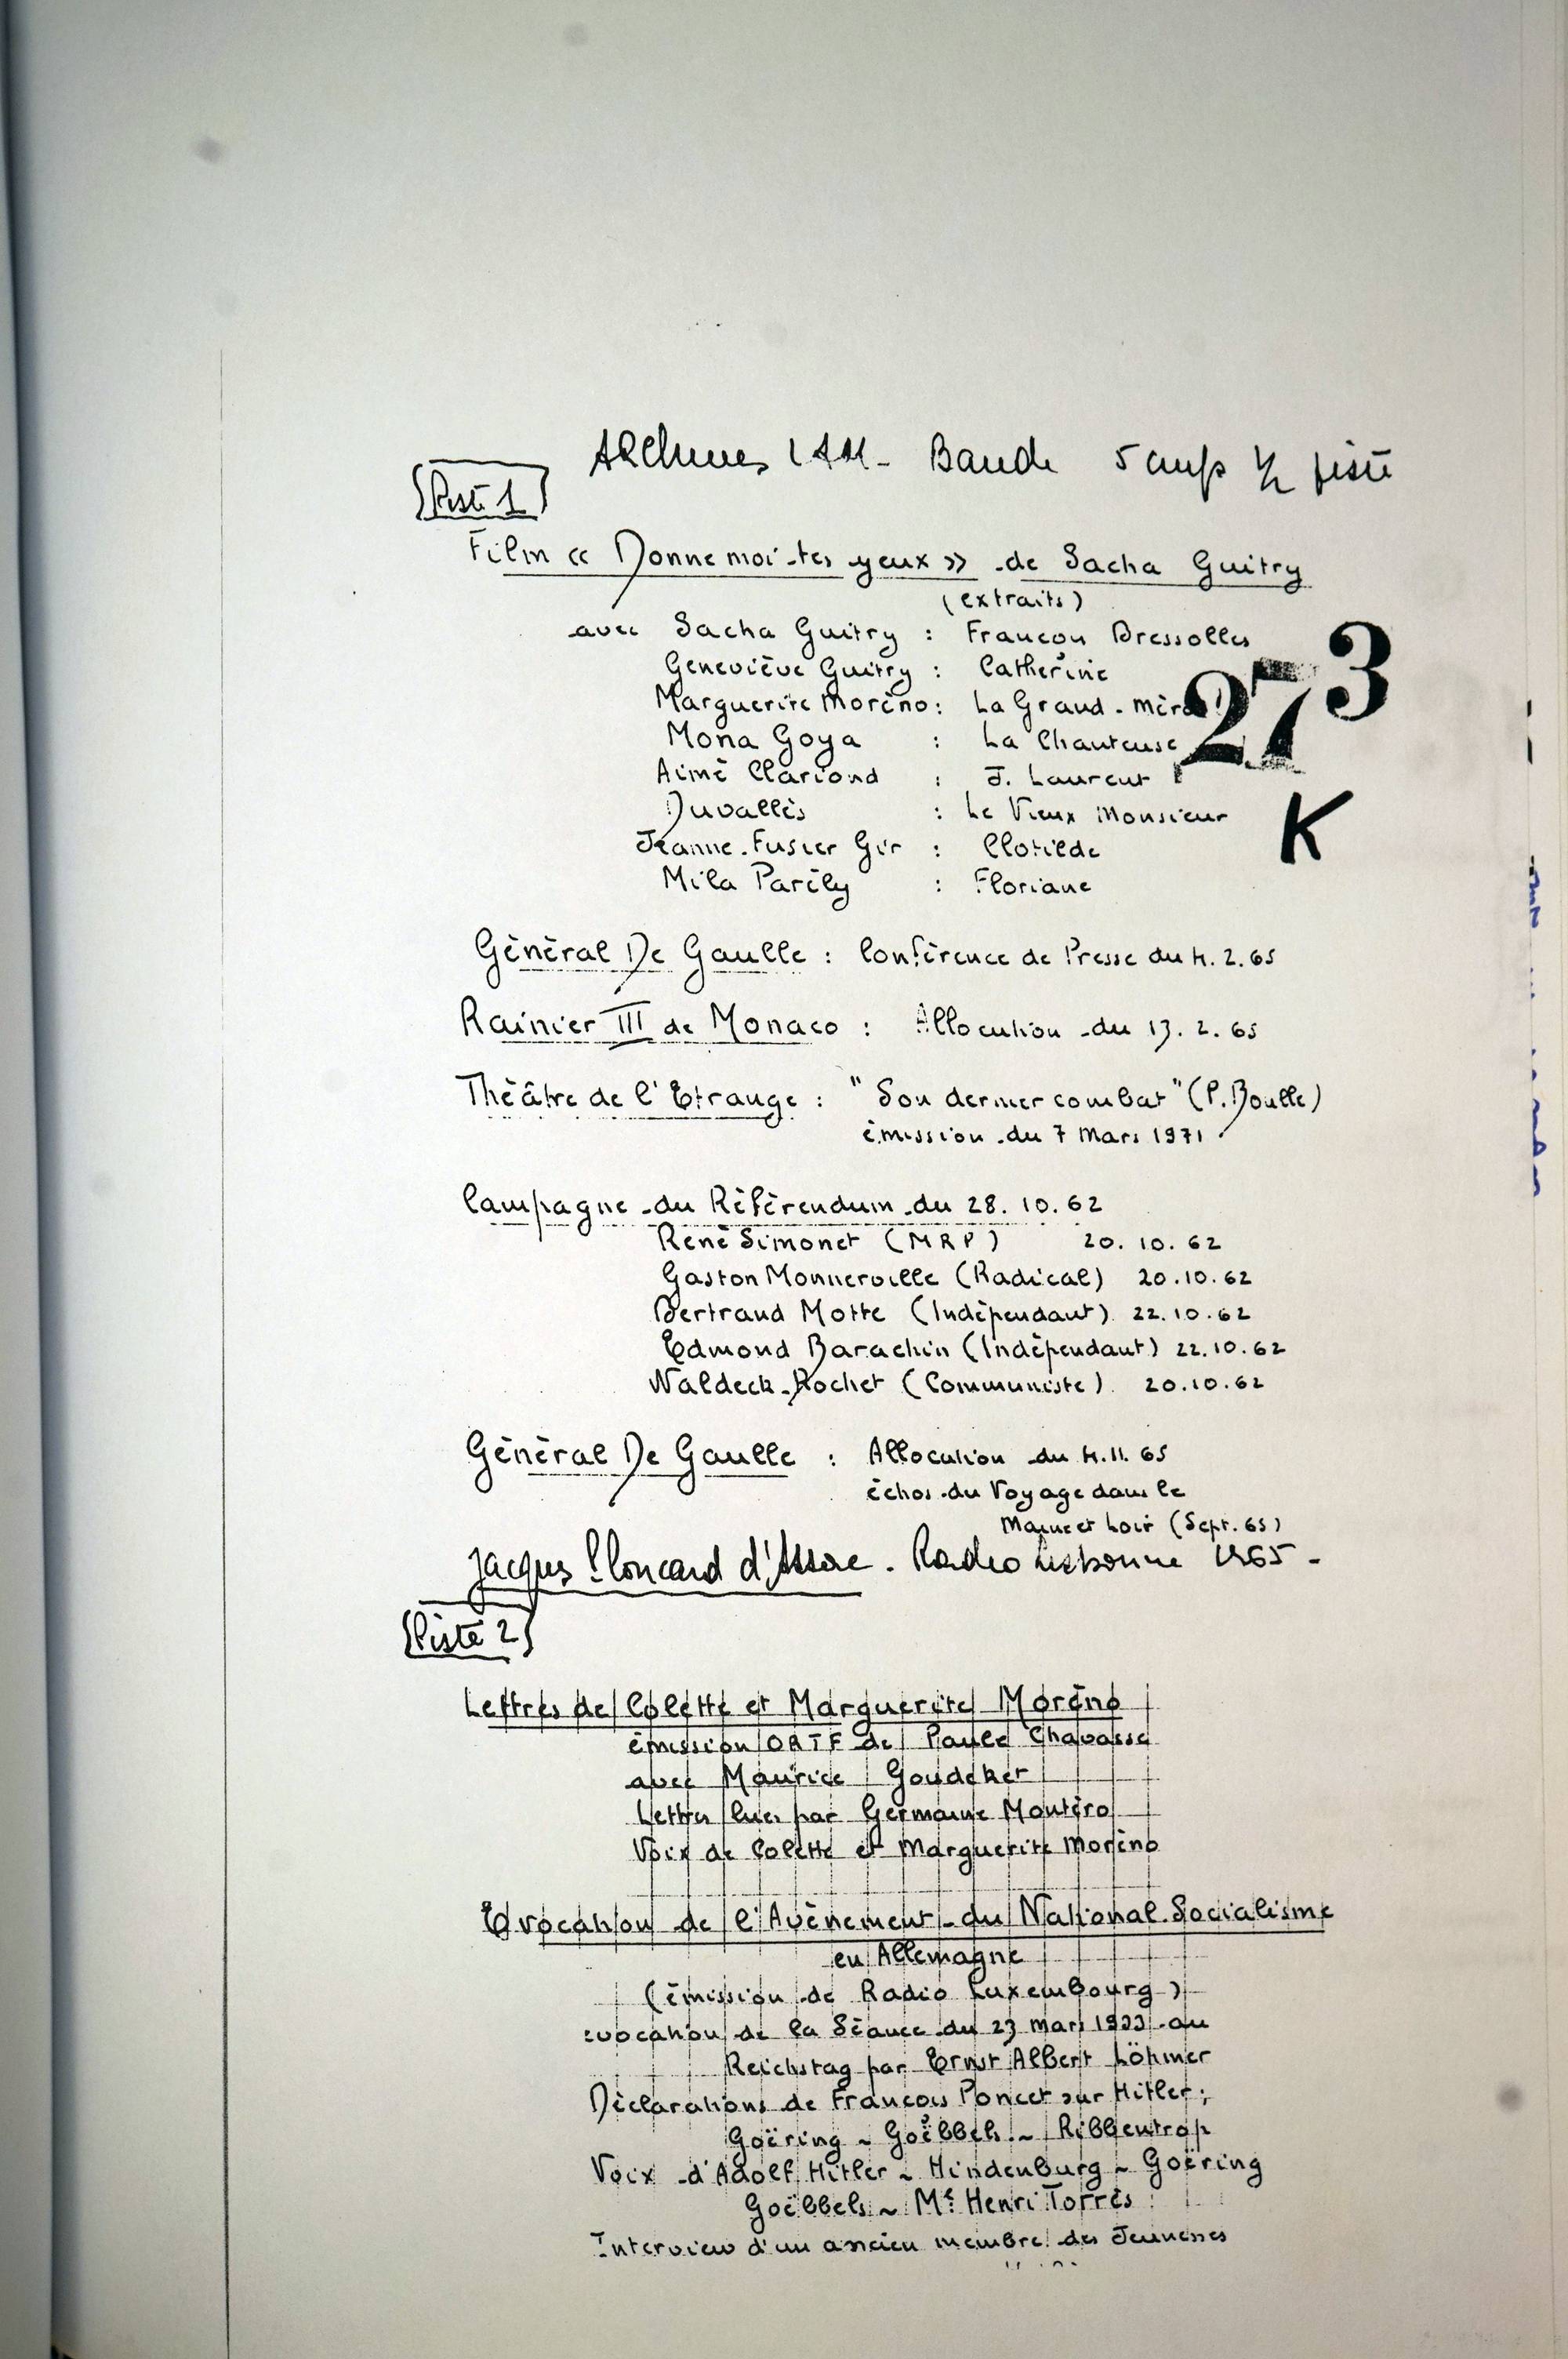 Archives Bande 5 cm/s 1/2 piste
Piste 1
Film « Donne moi tes yeux » de Sacha Guitry
(extraits)
avec Sacha Guitry : François Bressolles
Geneviève Guitry : Catherine
Marguerite Moréno : La Grand-mère
273
Mona Goya : La Chanteuse
Aimé Clariond : J. Laurent
Duvallès : Le Vieux Monsieur
K
Jeanne-Fusier Gir : Clotilde
Mila Parély : Floriane
Général De Gaulle : Conférence de Presse du 4.2.65
Rainier III de Monaco : Allocution du 13.2.65
Théâtre de l'Etrange : "Son dernier combat" (P. Boulle)
émission du 7 Mars 1971
Campagne du Référendum du 28.10.62
René Simonet (MRP) 20.10.62
Gaston Monnerville (Radical) 20.10.62
Bertrand Motte (Indépendant) 22.10.62
Edmond Barachin (Indépendant) 22.10.62
Waldeck-Rochet (Communiste) 20.10.62
Général De Gaulle : Allocution du 4.11.65
échos du Voyage dans le
Maine et Loir (Sept. 65)
Jacques Ploncard d'Assac. Radio Lisbonne 1965 -
Piste 2
Lettres de Colette et Marguerite Moréno
émission ORTF de Paule Chavasse
avec Maurice Goudeket
Lettres lues par Germaine Montéro
Voix de Colette et Marguerite Moréno
Evocation de l'Avènement du National-Socialisme
en Allemagne
(émission de Radio Luxembourg)
evocation de la Séance du 23 mars 1933 au
Reichstag par Ernst Albert Löhmer
Déclarations de François Poncet sur Hitler;
Goëring ~ Goëbbels ~ Ribbentrop
Voix d'Adolf Hitler ~ Hindenburg ~ Goëring
Goëbbels ~ Me Henri Torrès
Interview d'un ancien membre des Jeunesses